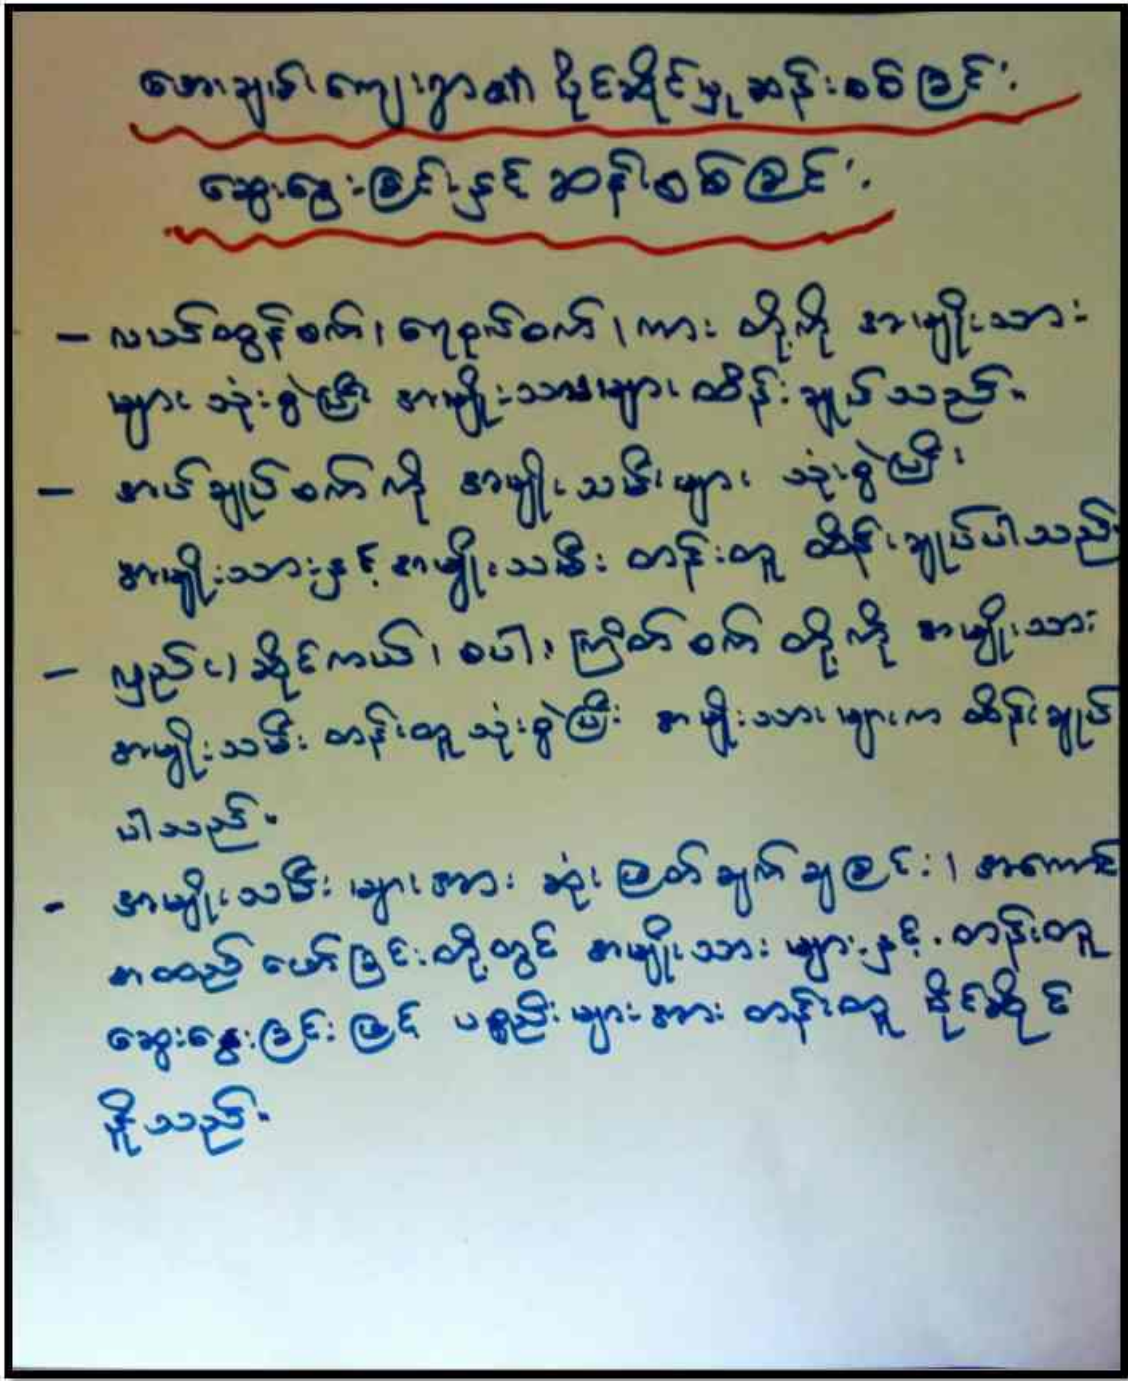 အေးချမ်းကျေးရွာ၏ ပိုင်ဆိုင်မှု ဆန်းစစ်ခြင်း
ဆွေးနွေးခြင်းနှင့် ဆန်းစစ်ခြင်း
- လယ်ထွန်စက်၊ ရေစုပ်စက်၊ ကား တို့ကို အမျိုးသား
များ သုံးစွဲပြီး အမျိုးသားများ ထိန်းချုပ်သည်။
- အပ်ချုပ်စက်ကို အမျိုးသမီးများ သုံးစွဲပြီး
အမျိုးသားနှင့် အမျိုးသမီး တန်းတူ ထိန်းချုပ်ပါသည်
- လှည်း၊ ဆိုင်ကယ်၊ စပါး ကြိတ်စက် တို့ကို အမျိုးသား
အမျိုးသမီး တန်းတူ သုံးစွဲပြီး အမျိုးသားများက ထိန်းချုပ်
ပါသည်။
- အမျိုးသမီးများအား ဆုံးဖြတ်ချက်ချခြင်း၊ အကောင်
အထည်ဖော်ခြင်းတို့တွင် အမျိုးသားများနှင့် တန်းတူ
ဆွေးနွေးခြင်းဖြင့် ပစ္စည်းများအား တန်းတူ ပိုင်ဆိုင်
သည်။